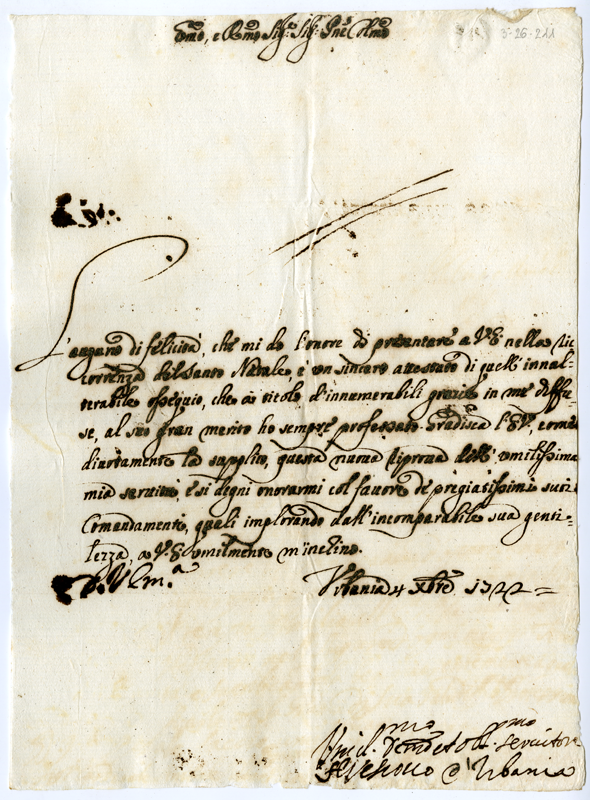 Emo, e Rmo Sig.r Sig.r Pne Clmo
5-26-211
L'augurio di felicità, che mi do l'onore di presentare a V.E. nella ric
correnza del Santo Natale, è un sincero attestato di quell' innal=
terabile ossequio, che a titolo d'innumerabili grazie in me diffu=
se, al suo gran merito ho sempre professato. Gradisca l'E.V., come
divotamente la supplico, questa nuova riprova dell' umilissima
mia servitù, e si degni onorarmi col favore de pregiatissimi suoi
Comandamenti, quali implorando dall'incomparabile sua genti=
lezza, a V.E. umilmente m'inchino.
Urbania 4 Xbre 1722 =
Umil.mo Devmo et obl.mo servitore
Il Vescovo d'Urbania